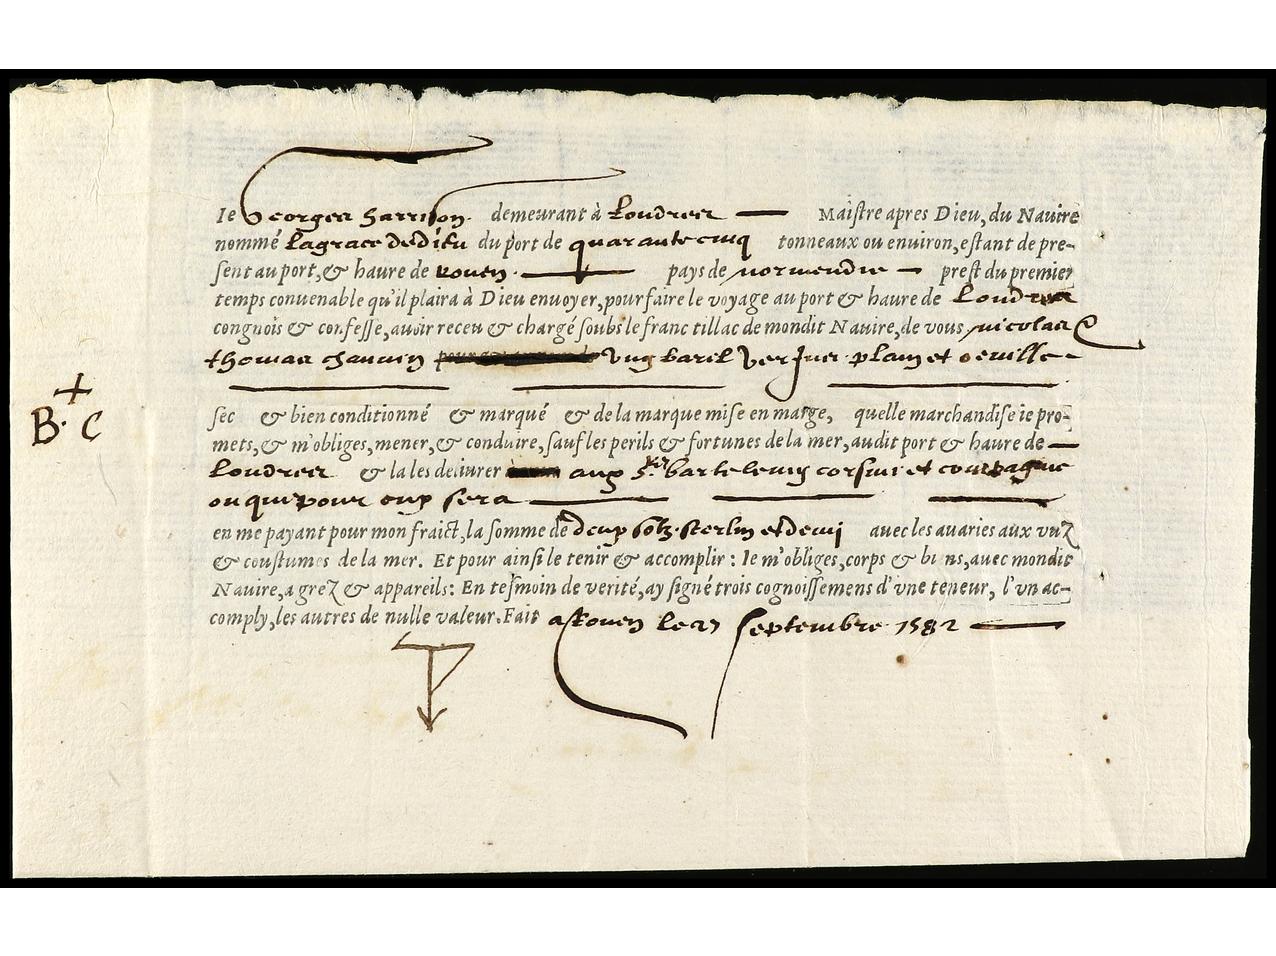 Ie Georges Harrison demeurant à Londres Maistre apres Dieu, du Nauire
nommé Lagrace dedieu du port de quarantecinq tonneaux ou enuiron, estant de pre-
sent au port, & haure de Rouen pays de normendie prest du premier
temps conuenable qu'il plaira à Dieu enuoyer, pour faire le voyage au port & haure de Londres
congnois & confesse, auoir receu & chargé soubs le franc tillac de mondit Nauire, de vous nicolas &
thomas chauuin ung baril plain et
sec & bien conditionné & marqué & de la marque mise en marge, quelle marchandise ie pro-
mets, & m'obliges, mener, & conduire, sauf les perils & fortunes de la mer, audit port & haure de
+
B. C
Londres & la les deliurer aux srs barteleмy corsini et compagnie
ou qui pour eux sera
en me payant pour mon fraict, la somme de deux solz sterlin et demi auec les auaries aux vuz
& coustumes de la mer. Et pour ainsi le tenir & accomplir: Ie m'obliges, corps & biens, auec mondit
Nauire, agrez & appareils: En tesmoin de verité, ay signé trois cognoissemens d'vne teneur, l'vn ac-
comply, les autres de nulle valeur. Fait a Rouen le septembre 1582